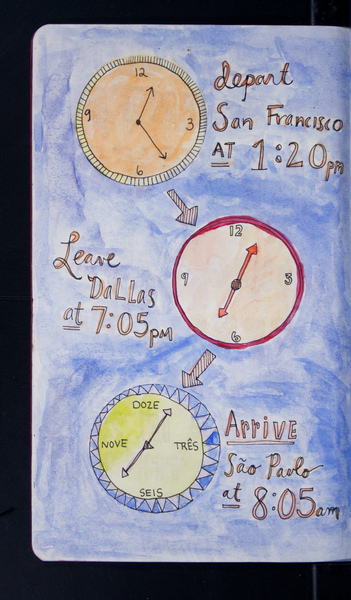 12
9
3
6
depart
San Francisco
AT 1:20pm
12
9
3
6
Leave
DaLLas
at 7:05pm
DOZE
NOVE
TRÊS
SEIS
ARRIVE
São Paolo
at 8:05am